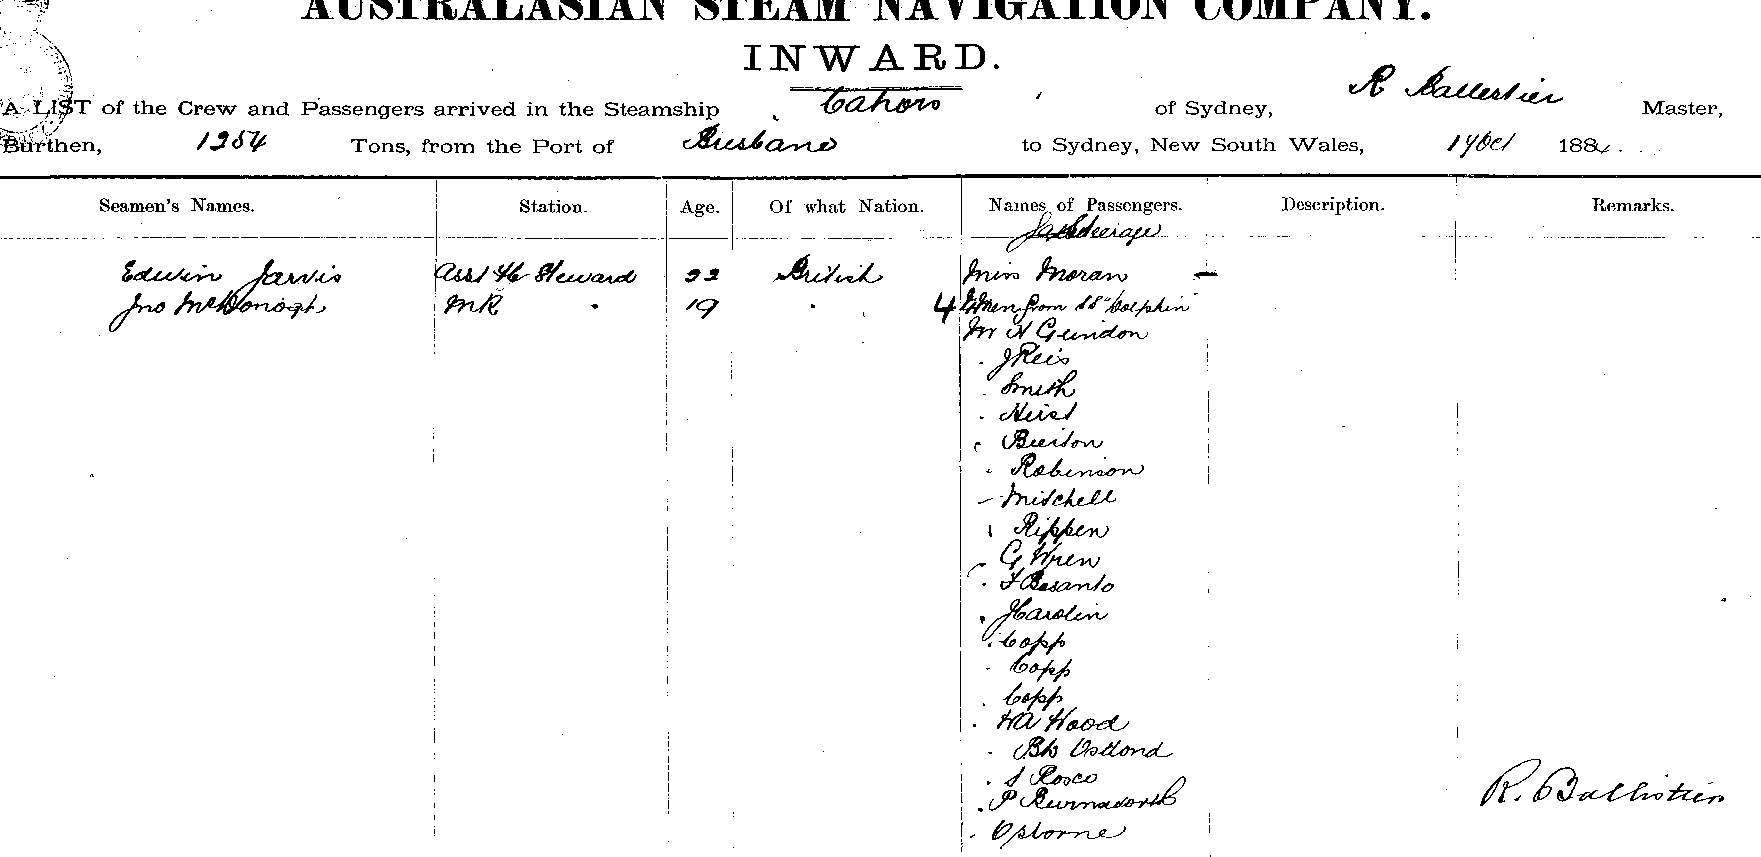 AUSTRALASIAN STEAM NAVIGATION COMPANY.
INWARD.
A LIST of the Crew and Passengers arrived in the Steamship Cahors of Sydney, R Master,
Burthen, 1254 Tons, from the Port of Brisbane to Sydney, New South Wales, Oct 188
Seamen's Names. Station. Age. Of what Nation. Names of Passengers. Description. Remarks.
Steerage
Edwin Jarvis Asst Steward 22 British Miss Moran —
Jno McDonogh MR " 19 " 4 Men from SS "Dolphin
Mr H Gundon
" J Reis
" Smith
" Hirst
" Burton
" Robinson
" Mitchell
" Rippen
" G Wren
" F Besanto
" J Carolin
" Copp
" Copp
" Copp
" HA Wood
" Ostlond
" S Rosco
" P
" Osborne
R. Ballistier